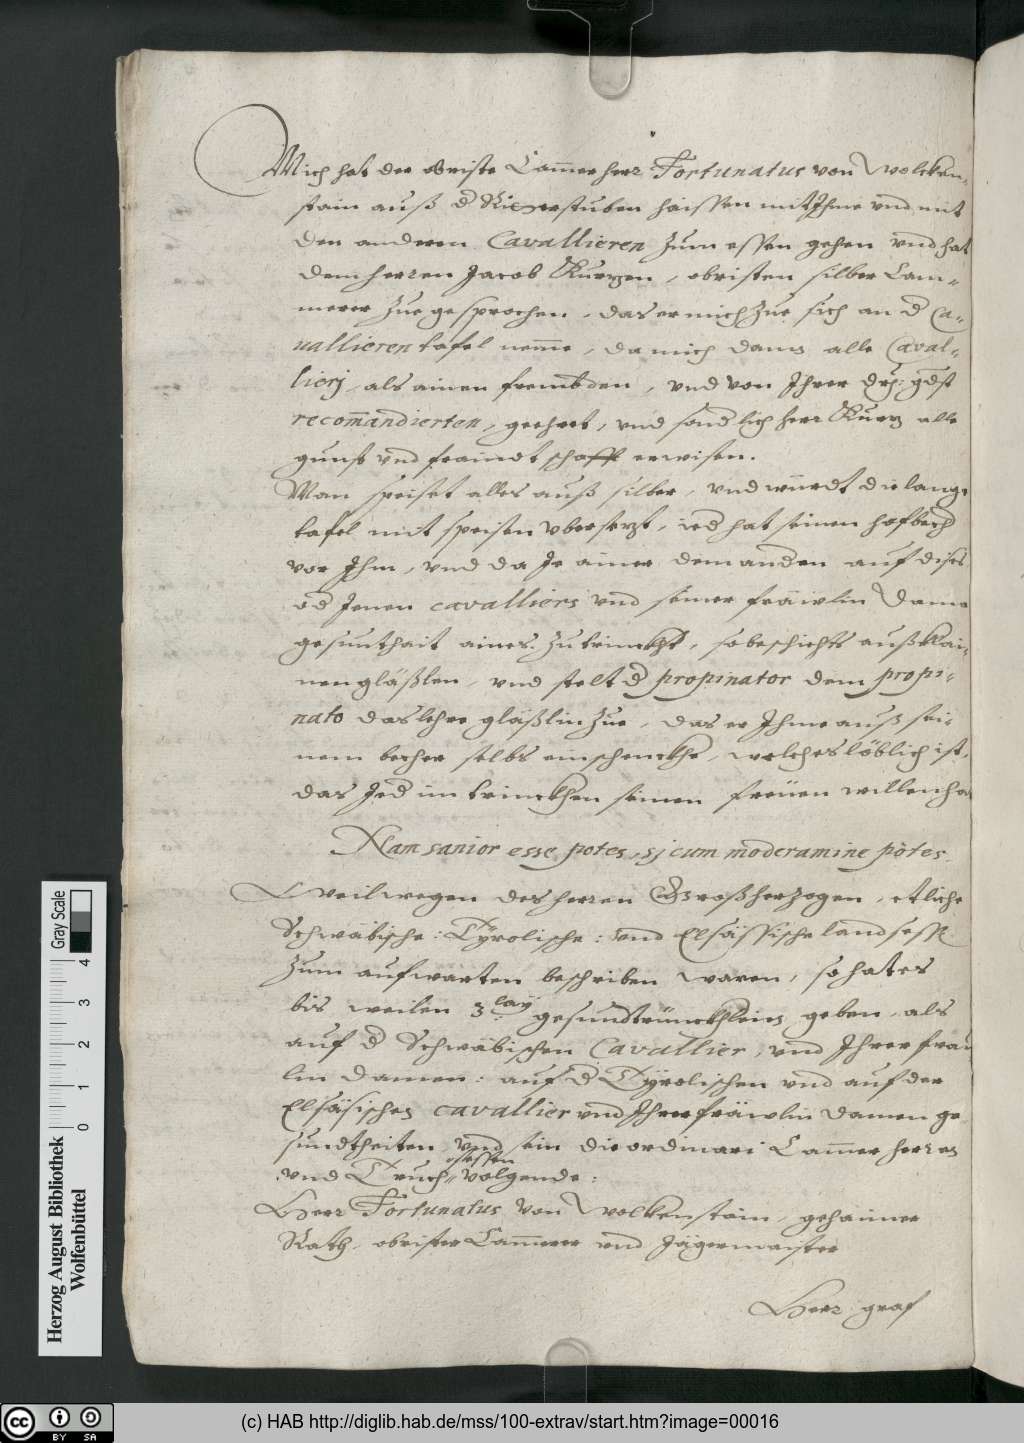 Mich hat der Obriste Cam̅erherr Fortunatus von Wolcken-
stain auß d Ritterstuben haissen mit Ihme vnd mit
den anderen Cavallieren zum essen gehen vnd hat
dem herren Jacob Kurzen, obristen silber Cam-
merer zue gesprochen, das er mich zue sich an d Ca-
uallieren tafel nem̅e, da mich dann alle Caval-
lierj, als ainen frembden, vnd von Ihrer Drl: gdst
recom̅andierten, geehret, vnd sond lich herr Kurz alle
gunst vnd fraindtschafft erwisen.
Man speiset alles auß silber, vnd würdt die lange
tafel mit speisen vbersezt, ied hat seinen hofbech
vor Ihm, vnd da Je ainer dem anden auf dises
od Jenen cavalliers vnd seiner fräwlin Dama
gesunthait aines zutrinckht, so beschichts auß klai-
nen gläßlen, vnd stelt d propinator dem propi-
nato das lehre gläßlin zue, das er Ihme auß sei-
nem becher selbs einschenckhe, welches löblich ist,
das Jed im trinckhen seinen freüen willen ha
Nam sanior esse potes, sj cum moderamine potes.
Weil wegen des herren Großherzogen, etliche
Schwäbische: Tÿrolische: vnd Elsässische landsess
zum aufwarten beschriben waren, so hat es
bis weilen 3 laÿ gesundtrünckhlein geben, als
auf d Schwäbischen Cavallier, vnd Ihrer fraw
lin Damen: auf d Tÿrolischen vnd auf der
Elsäsischen cavallier vnd Ihrer fräwlin Damen ge
sundtheiten, vnd sein die ordinari Cam̅erherren
vnd Truchsessen volgende:
Herr Fortunatus von Wolkenstain, gehaimer
Rath, obrister Cam̅erer vnd Jägermaister
Herr graf
Herzog August Bibliothek
Wolfenbüttel
0 1 2 3 4
Gray Scale
cc BY SA
(c) HAB http://diglib.hab.de/mss/100-extrav/start.htm?image=00016